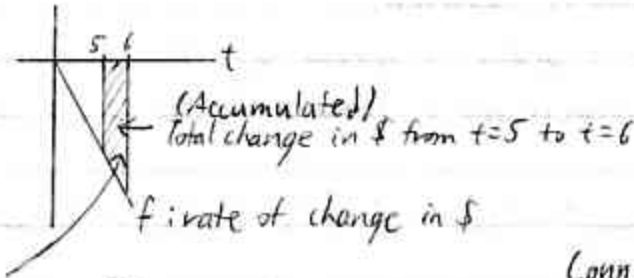 5 6
t
(Accumulated)
Total change in $ from t=5 to t=6
f : rate of change in $
(onn